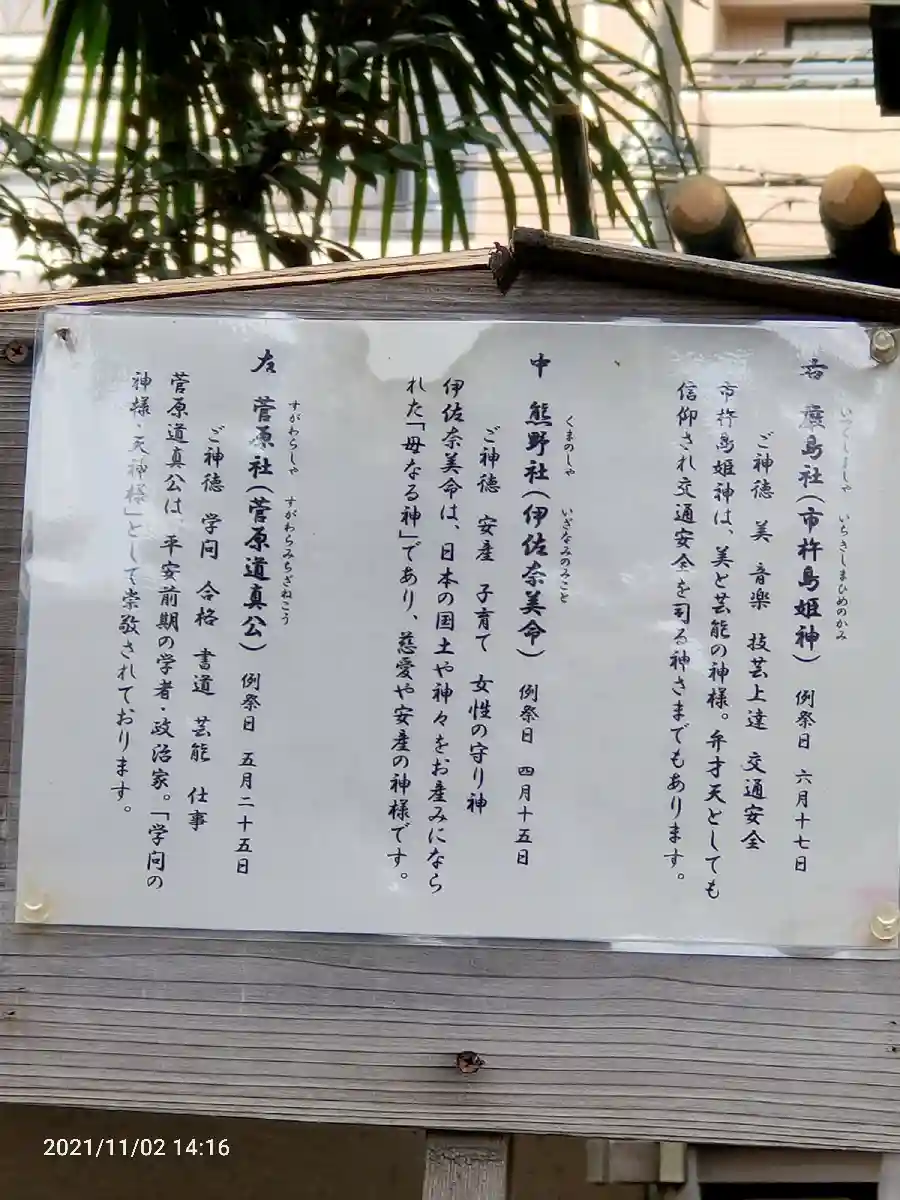 右 厳島社(市杵島姫神) 例祭日 六月十七日
いつくしましゃ いちきしまひめのかみ
ご神徳 美 音楽 技芸上達 交通安全
市杵島姫神は、美と芸能の神様。弁才天としても
信仰され交通安全を司る神さまでもあります。
中 熊野社(伊佐奈美命) 例祭日 四月十五日
くまのしゃ いざなみのみこと
ご神徳 安産 子育て 女性の守り神
伊佐奈美命は、日本の国土や神々をお産みになら
れた「母なる神」であり、慈愛や安産の神様です。
左 菅原社(菅原道真公) 例祭日 五月二十五日
すがわらしゃ すがわらみちざねこう
ご神徳 学問 合格 書道 芸能 仕事
菅原道真公は、平安前期の学者・政治家。「学問の
神様・天神様」として崇敬されております。
2021/11/02 14:16